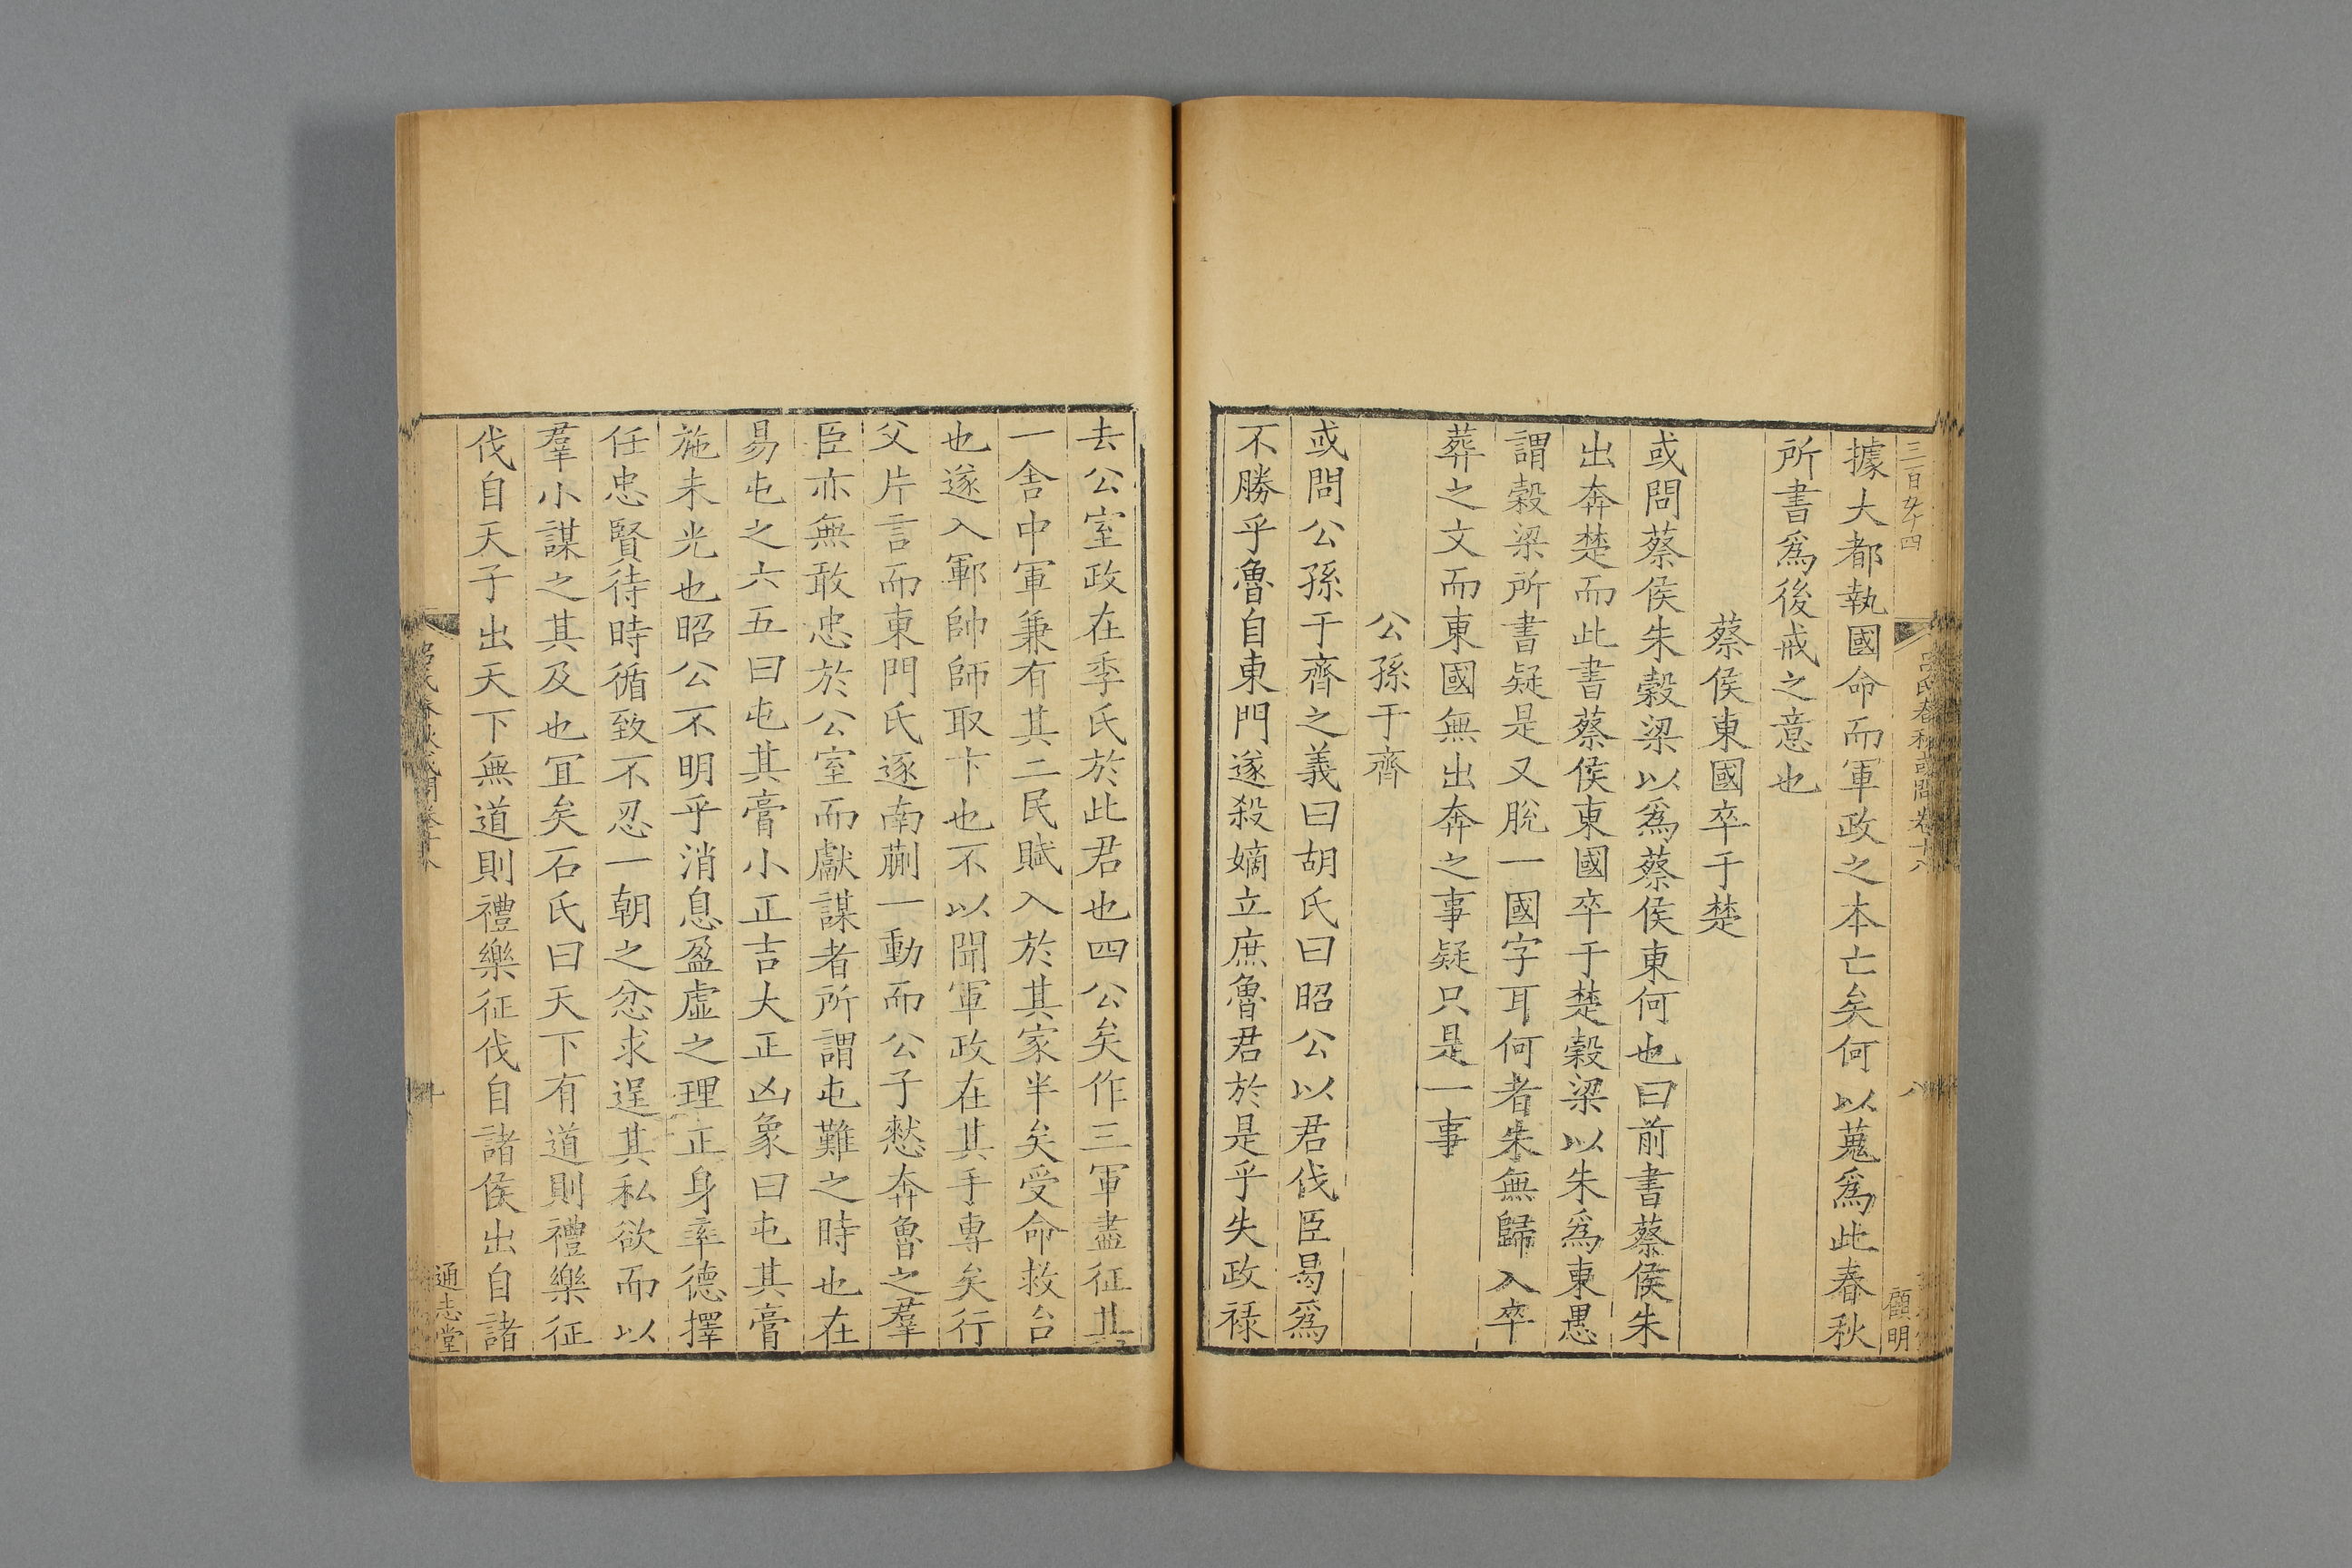 據大都執國命而軍政之本亡矣何以蒐爲此春秋
所書爲後戒之意也
蔡侯東國卒于楚
或問蔡侯朱穀梁以爲蔡侯東何也曰前書蔡侯朱
出奔楚而此書蔡侯東國卒于楚穀梁以朱爲東愚
謂穀梁所書疑是又脫一國字耳何者朱無歸入卒
葬之文而東國無出奔之事疑只是一事
公孫于齊
或問公孫于齊之義曰胡氏曰昭公以君伐臣曷爲
不勝乎魯自東門遂殺嫡立庶魯君於是乎失政祿
去公室政在季氏於此君也四公矣作三軍盡征其
一舍中軍兼有其二民賦入於其家半矣受命救台
也遂入鄆帥師取卞也不以聞軍政在其手專矣行
父片言而東門氏逐南蒯一動而公子憖奔魯之羣
臣亦無敢忠於公室而獻謀者所謂屯難之時也在
易屯之六五曰屯其膏小正吉大正凶象曰屯其膏
施未光也昭公不明乎消息盈虛之理正身率德擇
任忠賢待時循致不忍一朝之忿求逞其私欲而以
羣小謀之其及也宜矣石氏曰天下有道則禮樂征
伐自天子出天下無道則禮樂征伐自諸侯出自諸
呂氏春秋或問卷十八
八
顧明
通志堂